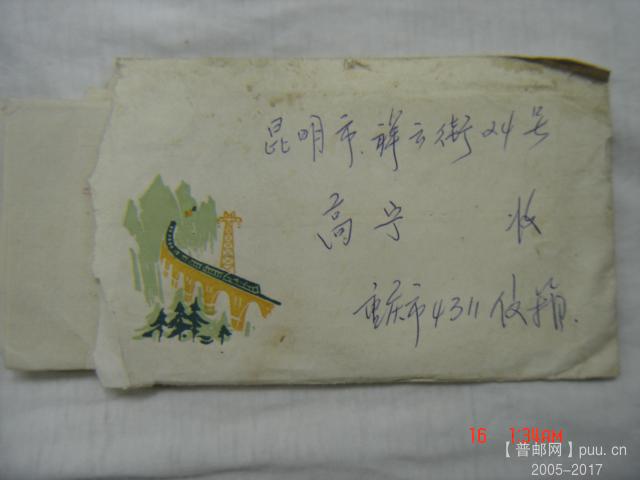 昆明市祥云街24号
高宁 收
重庆市4311信箱.
16 1:34AM
【普邮网】puu.cn
2005-2017